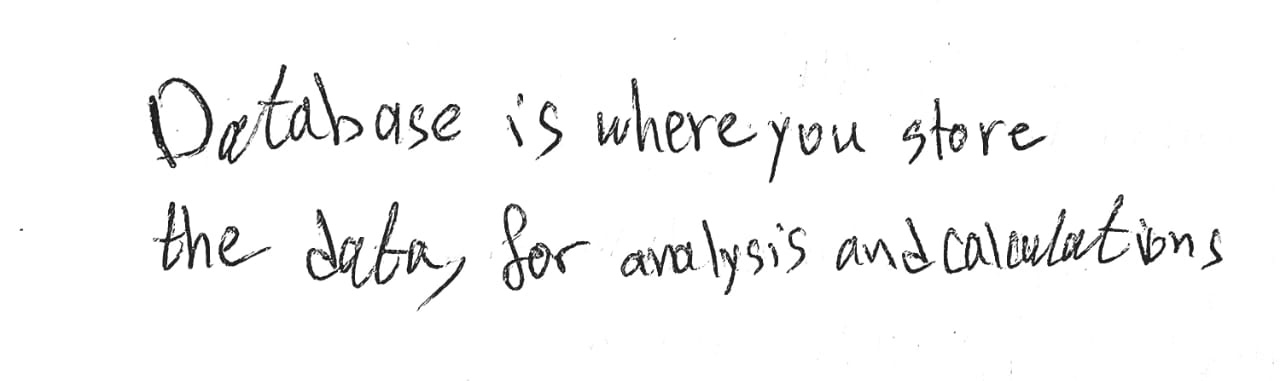 Database is where you store
the data, for analysis and calculations